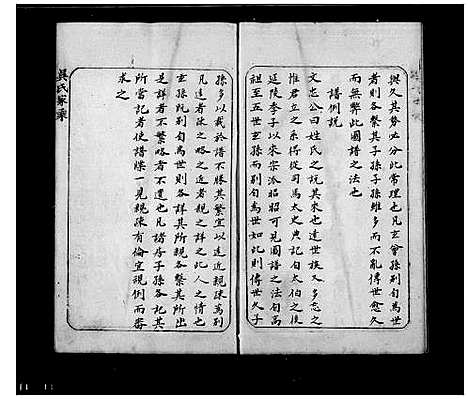 與久其勢必分此常理也凡玄曾孫別自為世
者則各繫其子孫子孫雖多而不亂傳世愈久
而無弊此圖譜之法也
譜例說
文忠公曰姓氏之說其來也遠世族又多忘之
惟君立之系得從司馬太史典記自太伯之後
延陵季子以來宗派昭昭可見圖譜之法自高
祖至五世玄孫而別自為世如此則傳世久子
孫多以載於譜不勝其繁宜以遠近親疎為別
凡遠者疎之略之近者親之詳之此人之情也
玄孫既別自為世則各詳其所親各繫其所出
是詳者不繁略者不遺也凡諸房子孫各紀其
所當記者使譜牒一見親疎有倫宜視例而審
求之
吳氏家乘